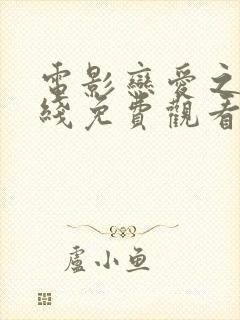 電影戀愛之
綫免費觀看
盧小魚